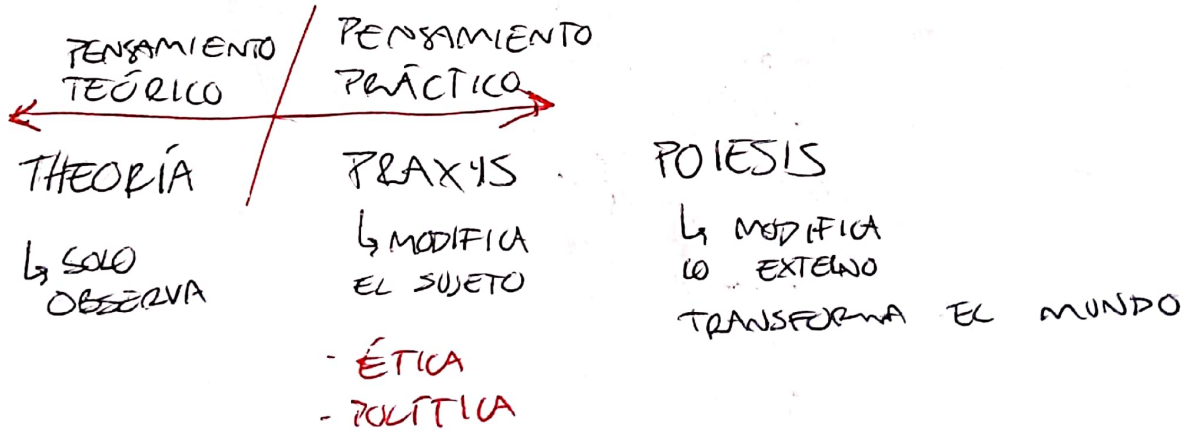 PENSAMIENTO
TEÓRICO
PENSAMIENTO
PRÁCTICO
THEORÍA
↳ SOLO
OBSERVA
PRAXYS
↳ MODIFICA
EL SUJETO
- ÉTICA
- POLÍTICA
POIESIS
↳ MODIFICA
LO EXTERNO
TRANSFORMA EL MUNDO